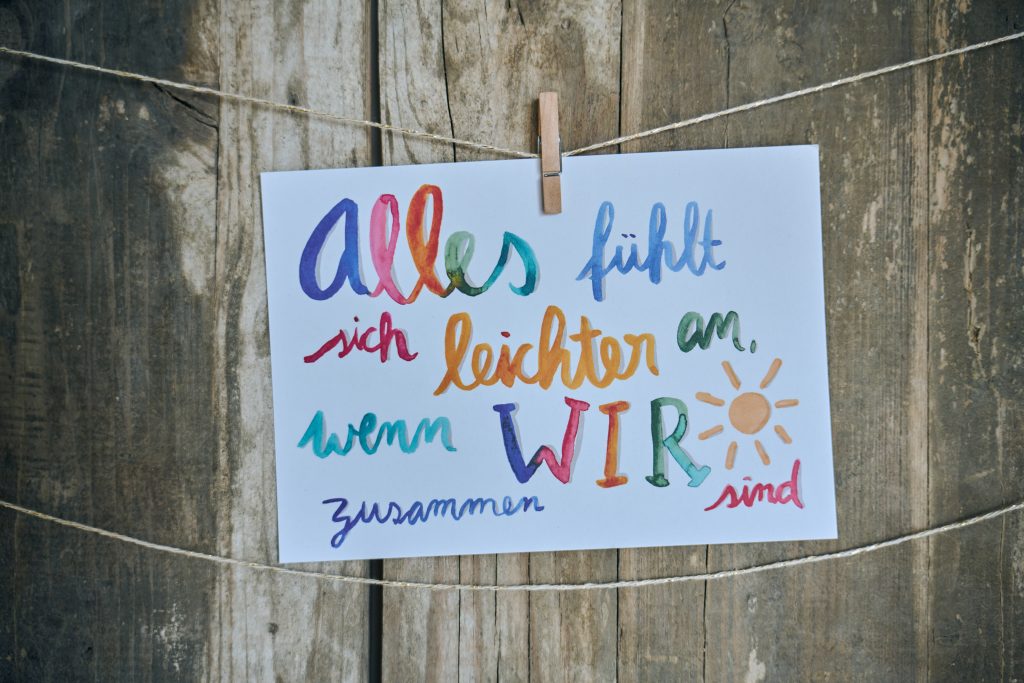 Alles fühlt
sich leichter an,
wenn WIR
zusammen sind